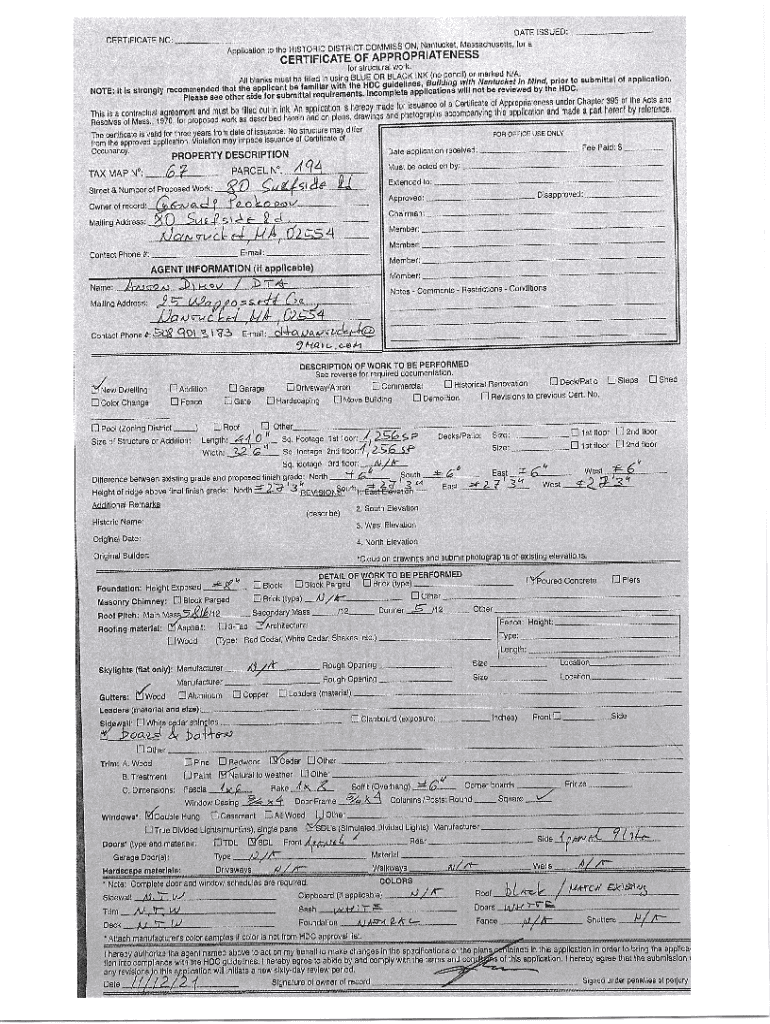 CERTIFICATE NO: DATE ISSUED:
Application to the HISTORIC DISTRICT COMMISSION, Nantucket, Massachusetts, for a
CERTIFICATE OF APPROPRIATENESS
for structural work.
All blanks must be filled in using BLUE OR BLACK INK (no pencil) or marked N/A.
NOTE: It is strongly recommended that the applicant be familiar with the HDC guidelines, Building with Nantucket in Mind, prior to submittal of application.
Please see other side for submittal requirements. Incomplete applications will not be reviewed by the HDC.
This is a contractual agreement and must be filled out in ink. An application is hereby made for issuance of a Certificate of Appropriateness under Chapter 395 of the Acts and
Resolves of Mass., 1970, for proposed work as described herein and on plans, drawings and photographs accompanying this application and made a part hereof by reference.
The certificate is valid for three years from date of issuance. No structure may differ
from the approved application. Violation may impede issuance of Certificate of
Occupancy.
PROPERTY DESCRIPTION
TAX MAP Nº: 67 PARCEL Nº: 194
Street & Number of Proposed Work: 80 Surfside Rd
Owner of record:
Mailing Address: 80 Surfside Rd
Nantucket, MA, 02554
Contact Phone #: E-mail:
AGENT INFORMATION (if applicable)
Name: Anton Dimov / DTA
Mailing Address: 25
Nantucket, MA, 02554
Contact Phone #: 508 901 3183 E-mail: @
gmail.com
FOR OFFICE USE ONLY
Date application received: Fee Paid: $
Must be acted on by:
Extended to:
Approved: Disapproved:
Chairman:
Member:
Member:
Member:
Member:
Notes - Comments - Restrictions - Conditions
DESCRIPTION OF WORK TO BE PERFORMED
See reverse for required documentation.
New Dwelling Addition Garage Driveway/Apron Commercial Historical Renovation Deck/Patio Steps Shed
Color Change Fence Gate Hardscaping Move Building Demolition Revisions to previous Cert. No.
Pool (Zoning District ) Roof Other
Size of Structure or Addition: Length: 41'0" Sq. Footage 1st floor: 1,256 SF Decks/Patio: Size: 1st floor 2nd floor
Width: 32'6" Sq. footage 2nd floor: 1,256 SF Size: 1st floor 2nd floor
Sq. footage 3rd floor: N/A
Difference between existing grade and proposed finish grade: North ±6" South ±6" East ±6" West ±6"
Height of ridge above final finish grade: North ±27'3" South ±27'3" East ±27'3" West ±27'3"
Additional Remarks REVISIONS: 1. East Elevation
(describe) 2. South Elevation
Historic Name: 3. West Elevation
Original Date: 4. North Elevation
Original Builder: *Cloud on drawings and submit photographs of existing elevations.
DETAIL OF WORK TO BE PERFORMED
Foundation: Height Exposed ±8" Block Block Parged Brick (type) Poured Concrete Piers
Masonry Chimney: Block Parged Brick (type) N/A Other
Roof Pitch: Main Mass /12 Secondary Mass /12 Dormer 5 /12 Other
Roofing material: Asphalt: 3-Tab Architecture
Wood (Type: Red Cedar, White Cedar, Shakes, etc.)
Fence: Height:
Type:
Length:
Skylights (flat only): Manufacturer N/A Rough Opening Size Location
Manufacturer Rough Opening Size Location
Gutters: Wood Aluminum Copper Leaders (material)
Leaders (material and size):
Sidewall: White cedar shingles Clapboard (exposure: inches) Front Side
Board & Batton
Other
Trim: A. Wood Pine Redwood Cedar Other
B. Treatment Paint Natural to weather Other
C. Dimensions: Fascia 1x6 Rake 1x8 Soffit (Overhang) ±6" Corner boards Frieze
Window Casing 5/4 x4 Door Frame 5/4 x4 Columns/Posts: Round Square
Windows*: Double Hung Casement All Wood Other
True Divided Lights(muntins), single pane SDL's (Simulated Divided Lights) Manufacturer
Doors* (type and material): TDL SDL Front Rear Side 1 panel 9 lite
Garage Door(s): Type N/A Material
Hardscape materials: Driveways N/A Walkways N/A Walls N/A
* Note: Complete door and window schedules are required.
COLORS
Sidewall N.T.W Clapboard (if applicable) N/A Roof Black / Match Existing
Trim N.T.W Sash White Doors White
Deck N.T.W Foundation Natural Fence N/A Shutters N/A
* Attach manufacturer's color samples if color is not from HDC approval list.
I hereby authorize the agent named above to act on my behalf to make changes in the specifications or the plans contained in this application in order to bring the applica-
tion into compliance with the HDC guidelines. I hereby agree to abide by and comply with the terms and conditions of this application. I hereby agree that the submission
any revisions to this application will initiate a new sixty-day review period.
Date 11/12/21 Signature of owner of record Signed under penalties of perjury